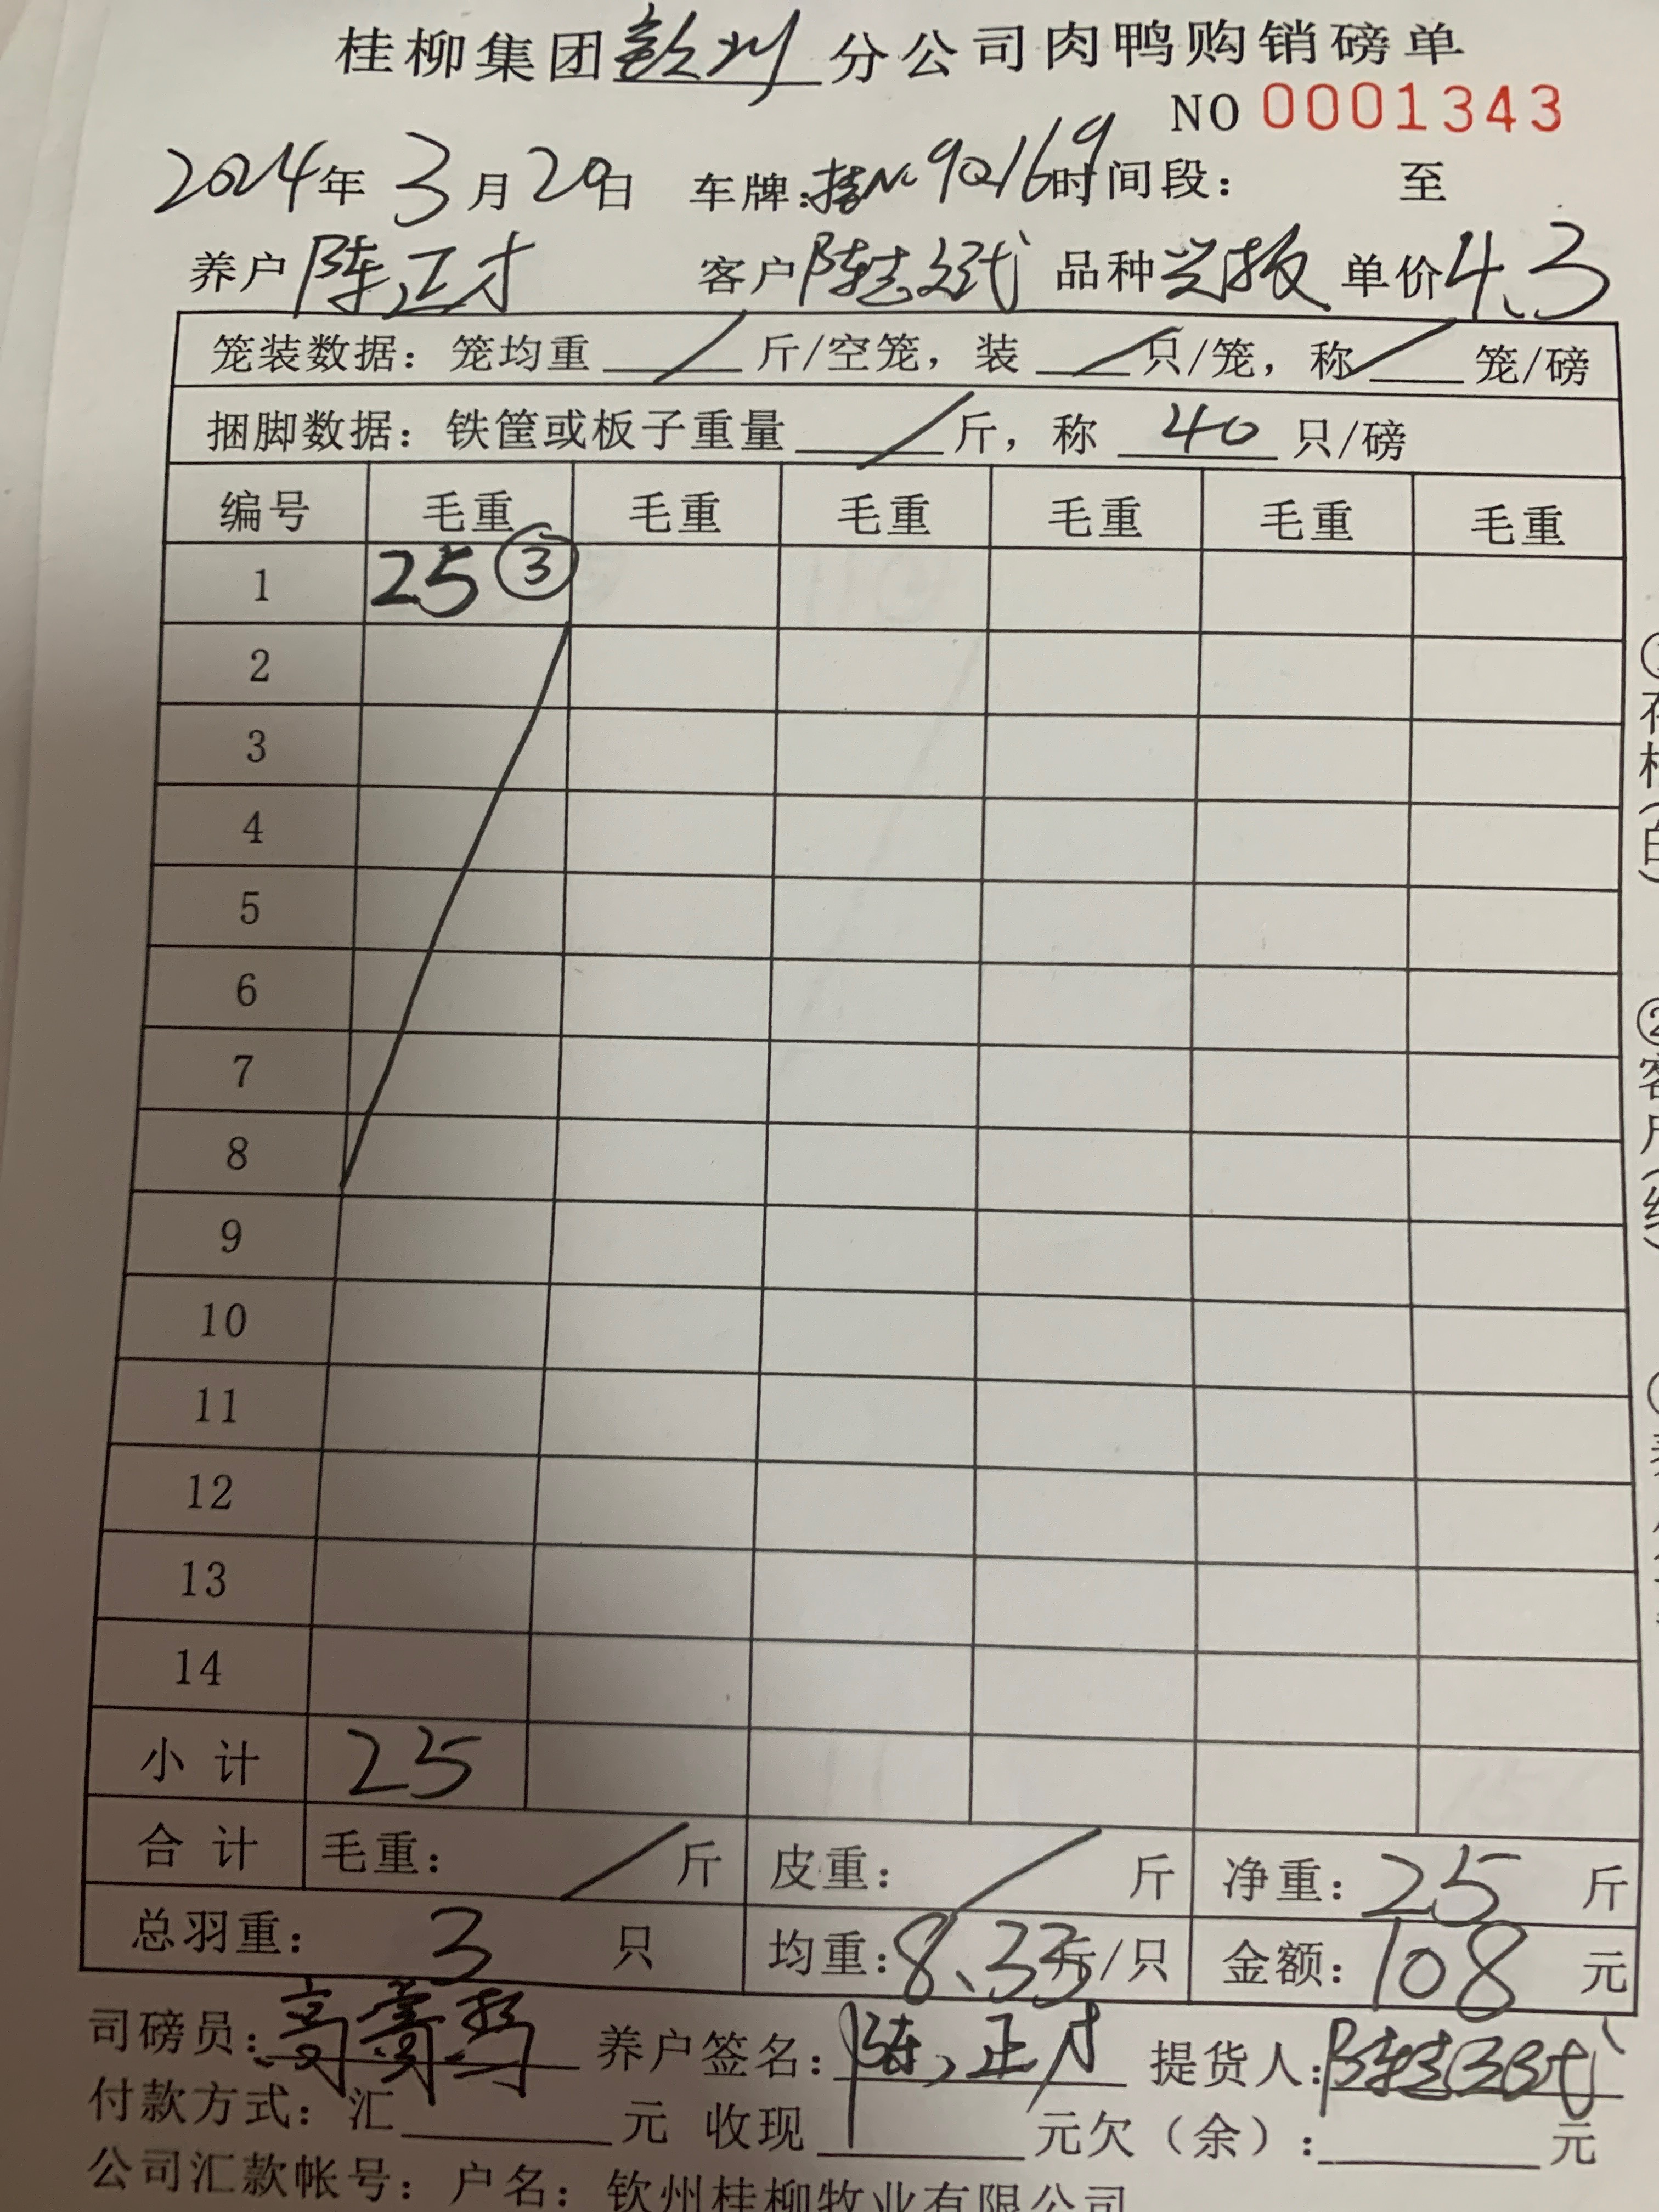 桂柳集团钦州分公司肉鸭购销磅单
NO 0001343
2024年3月20日 车牌:桂N·90169时间段: 至
养户 陈正才 客户 陈志斌 品种 单价 4.3
笼装数据: 笼均重 / 斤/空笼, 装 / 只/笼, 称 / 笼/磅
捆脚数据: 铁筐或板子重量 / 斤, 称 40 只/磅
编号 毛重 毛重 毛重 毛重 毛重 毛重
1 25 ③
2
3
4
5
6
7
8
9
10
11
12
13
14
小计 25
合计 毛重: / 斤 皮重: / 斤 净重: 25 斤
总羽重: 3 只 均重: 8.33斤/只 金额: 108 元
司磅员: 高 养户签名: 陈正才 提货人: 陈志斌
付款方式: 汇 元 收现 元欠（余）: 元
公司汇款帐号: 户名: 钦州桂柳牧业有限公司
①
(白)
②客户(红)